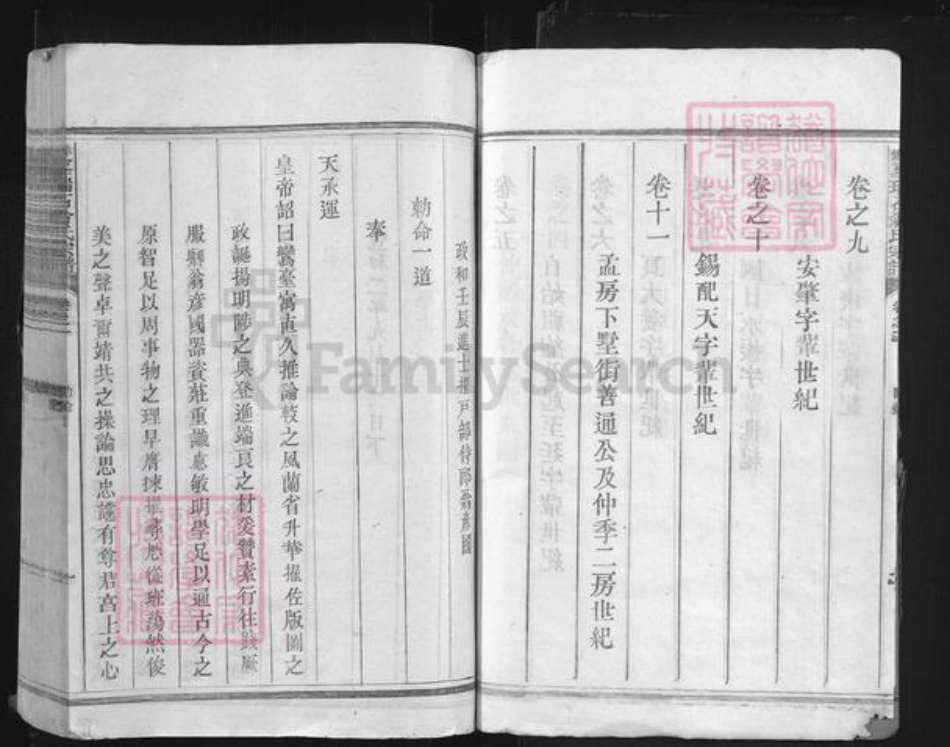 卷之九
安肇字輩世紀
卷之十
錫配天字輩世紀
卷十一
孟房下墅街善通公及仲季二房世紀
政和壬辰進士授戶部侍郎翁彥國
勅命一道
奉
天承運
皇帝詔曰鸞臺寓直久推論之風蘭省升華擢佐版圖之
政誕揚明陟之典登進端良之材爰贊素行往踐厥
服翁彥國器資莊重識慮敏明學足以通古今之
原智足以周事物之理早膺揀擢從班藹然後
美之聲卓爾靖共之操論思忠讜有尊君高上之心
FamilySearch